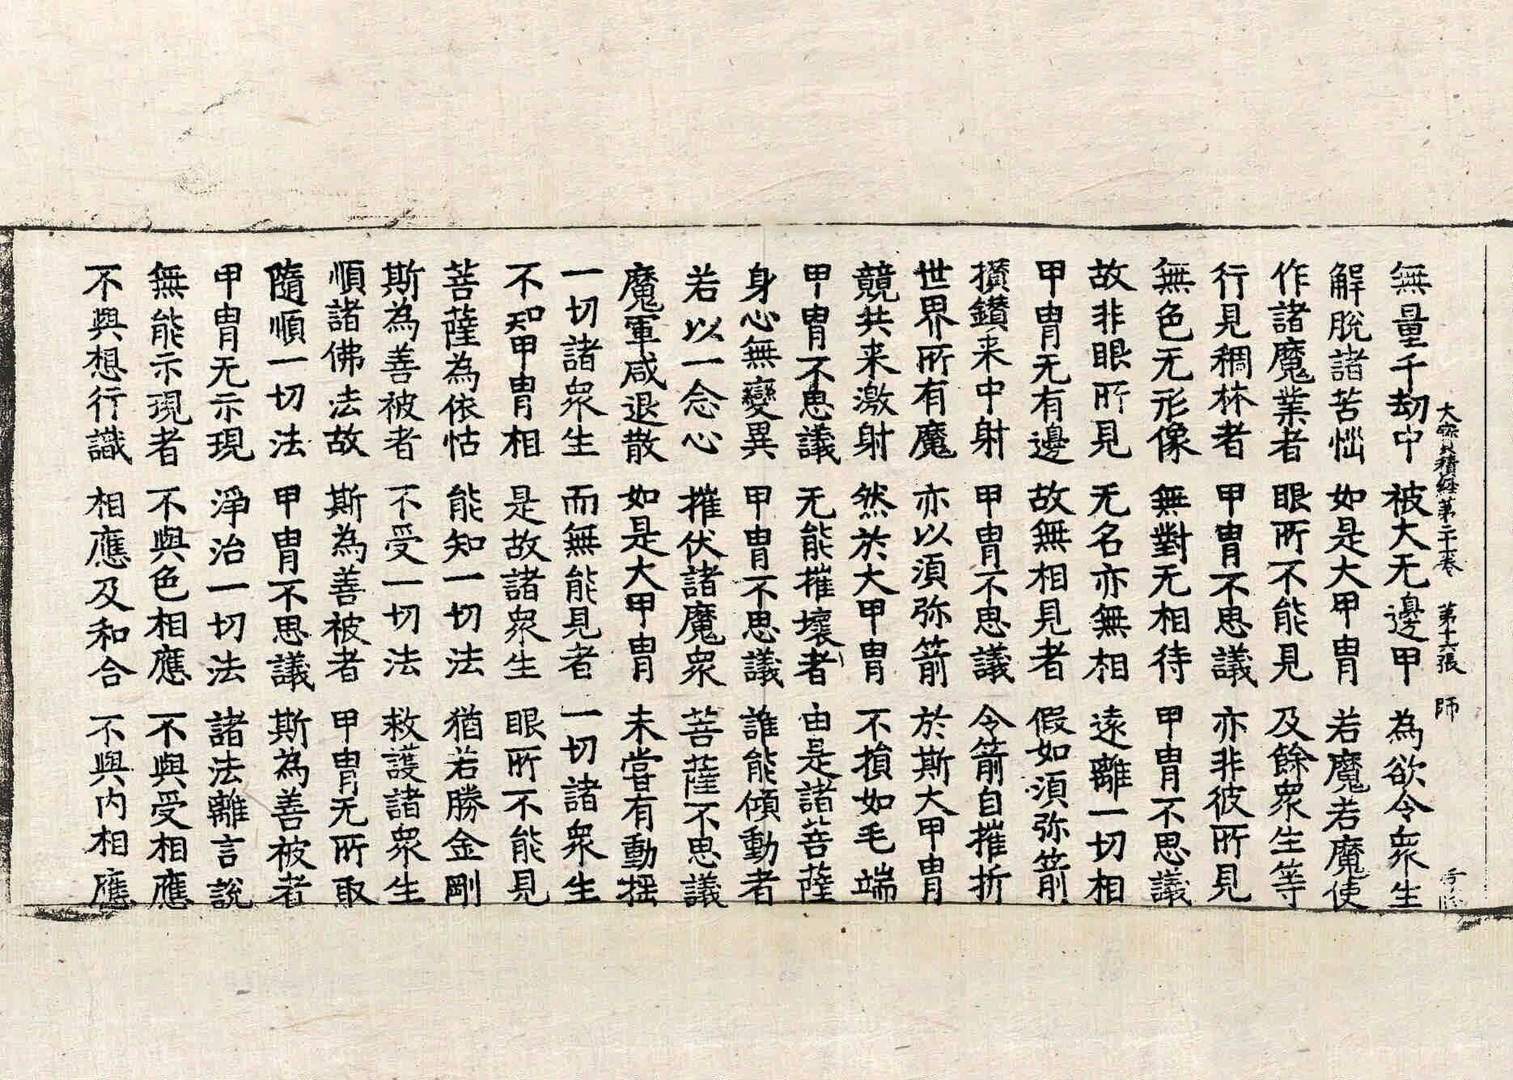 大寳積經第二十一卷　第十六張　師
無量千劫中　被大无邊甲　為欲令衆生
解脫諸苦惱　如是大甲冑　若魔若魔使
作諸魔業者　眼所不能見　及餘衆生等
行見稠林者　甲冑不思議　亦非彼所見
無色无形像　無對无相待　甲冑不思議
故非眼所見　无名亦無相　遠離一切相
甲冑无有邊　故無相見者　假如須弥箭
攢鑽来中射　甲冑不思議　令箭自摧折
世界所有魔　亦以須弥箭　於斯大甲冑
競共来激射　然於大甲冑　不損如毛端
甲冑不思議　无能摧壞者　由是諸菩薩
身心無變異　甲冑不思議　誰能傾動者
若以一念心　摧伏諸魔衆　菩薩不思議
魔軍咸退散　如是大甲冑　未嘗有動揺
一切諸衆生　而無能見者　一切諸衆生
不知甲冑相　是故諸衆生　眼所不能見
菩薩為依怙　能知一切法　猶若勝金剛
斯為善被者　不受一切法　救護諸衆生
順諸佛法故　斯為善被者　甲冑无所取
隨順一切法　甲冑不思議　斯為善被者
甲冑无示現　淨治一切法　諸法離言說
無能示現者　不與色相應　不與受相應
不與想行識　相應及和合　不與内相應